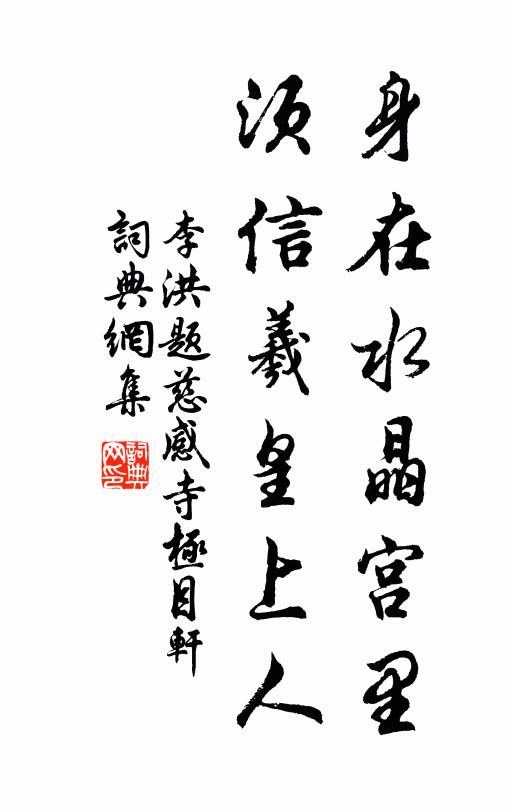 身在水晶宫里
须信羲皇上人
李洪题慈感寺極目軒
詞典網集
詞典
网印